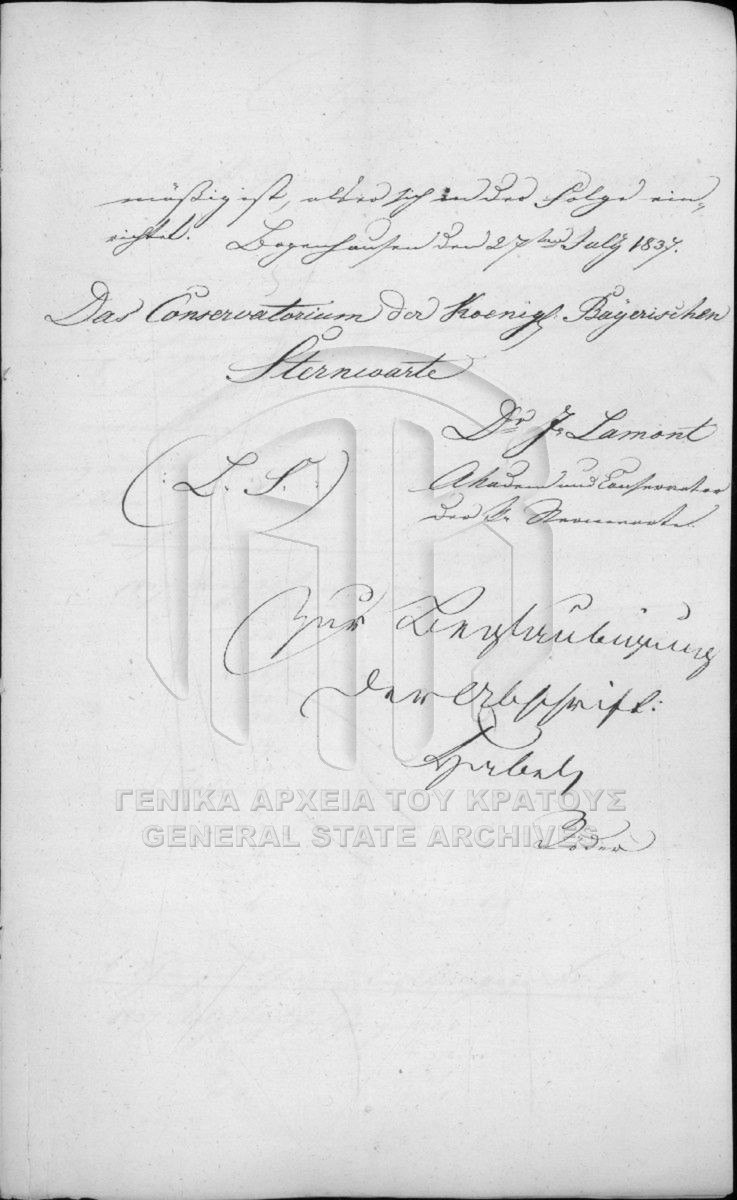 mäßig ist, als er sich in der Folge ein-
richtet. Bogenhausen den 27ten July 1837.
Das Conservatorium der Koenigl. Bayerischen
Sternwarte
Dr. J. Lamont
(: L. S. :)
Akadem. und Conservator
der k. Sternwarte.
Zur Beglaubigung
der Abschrift:
ΓΕΝΙΚΑ ΑΡΧΕΙΑ ΤΟΥ ΚΡΑΤΟΥΣ
GENERAL STATE ARCHIVES